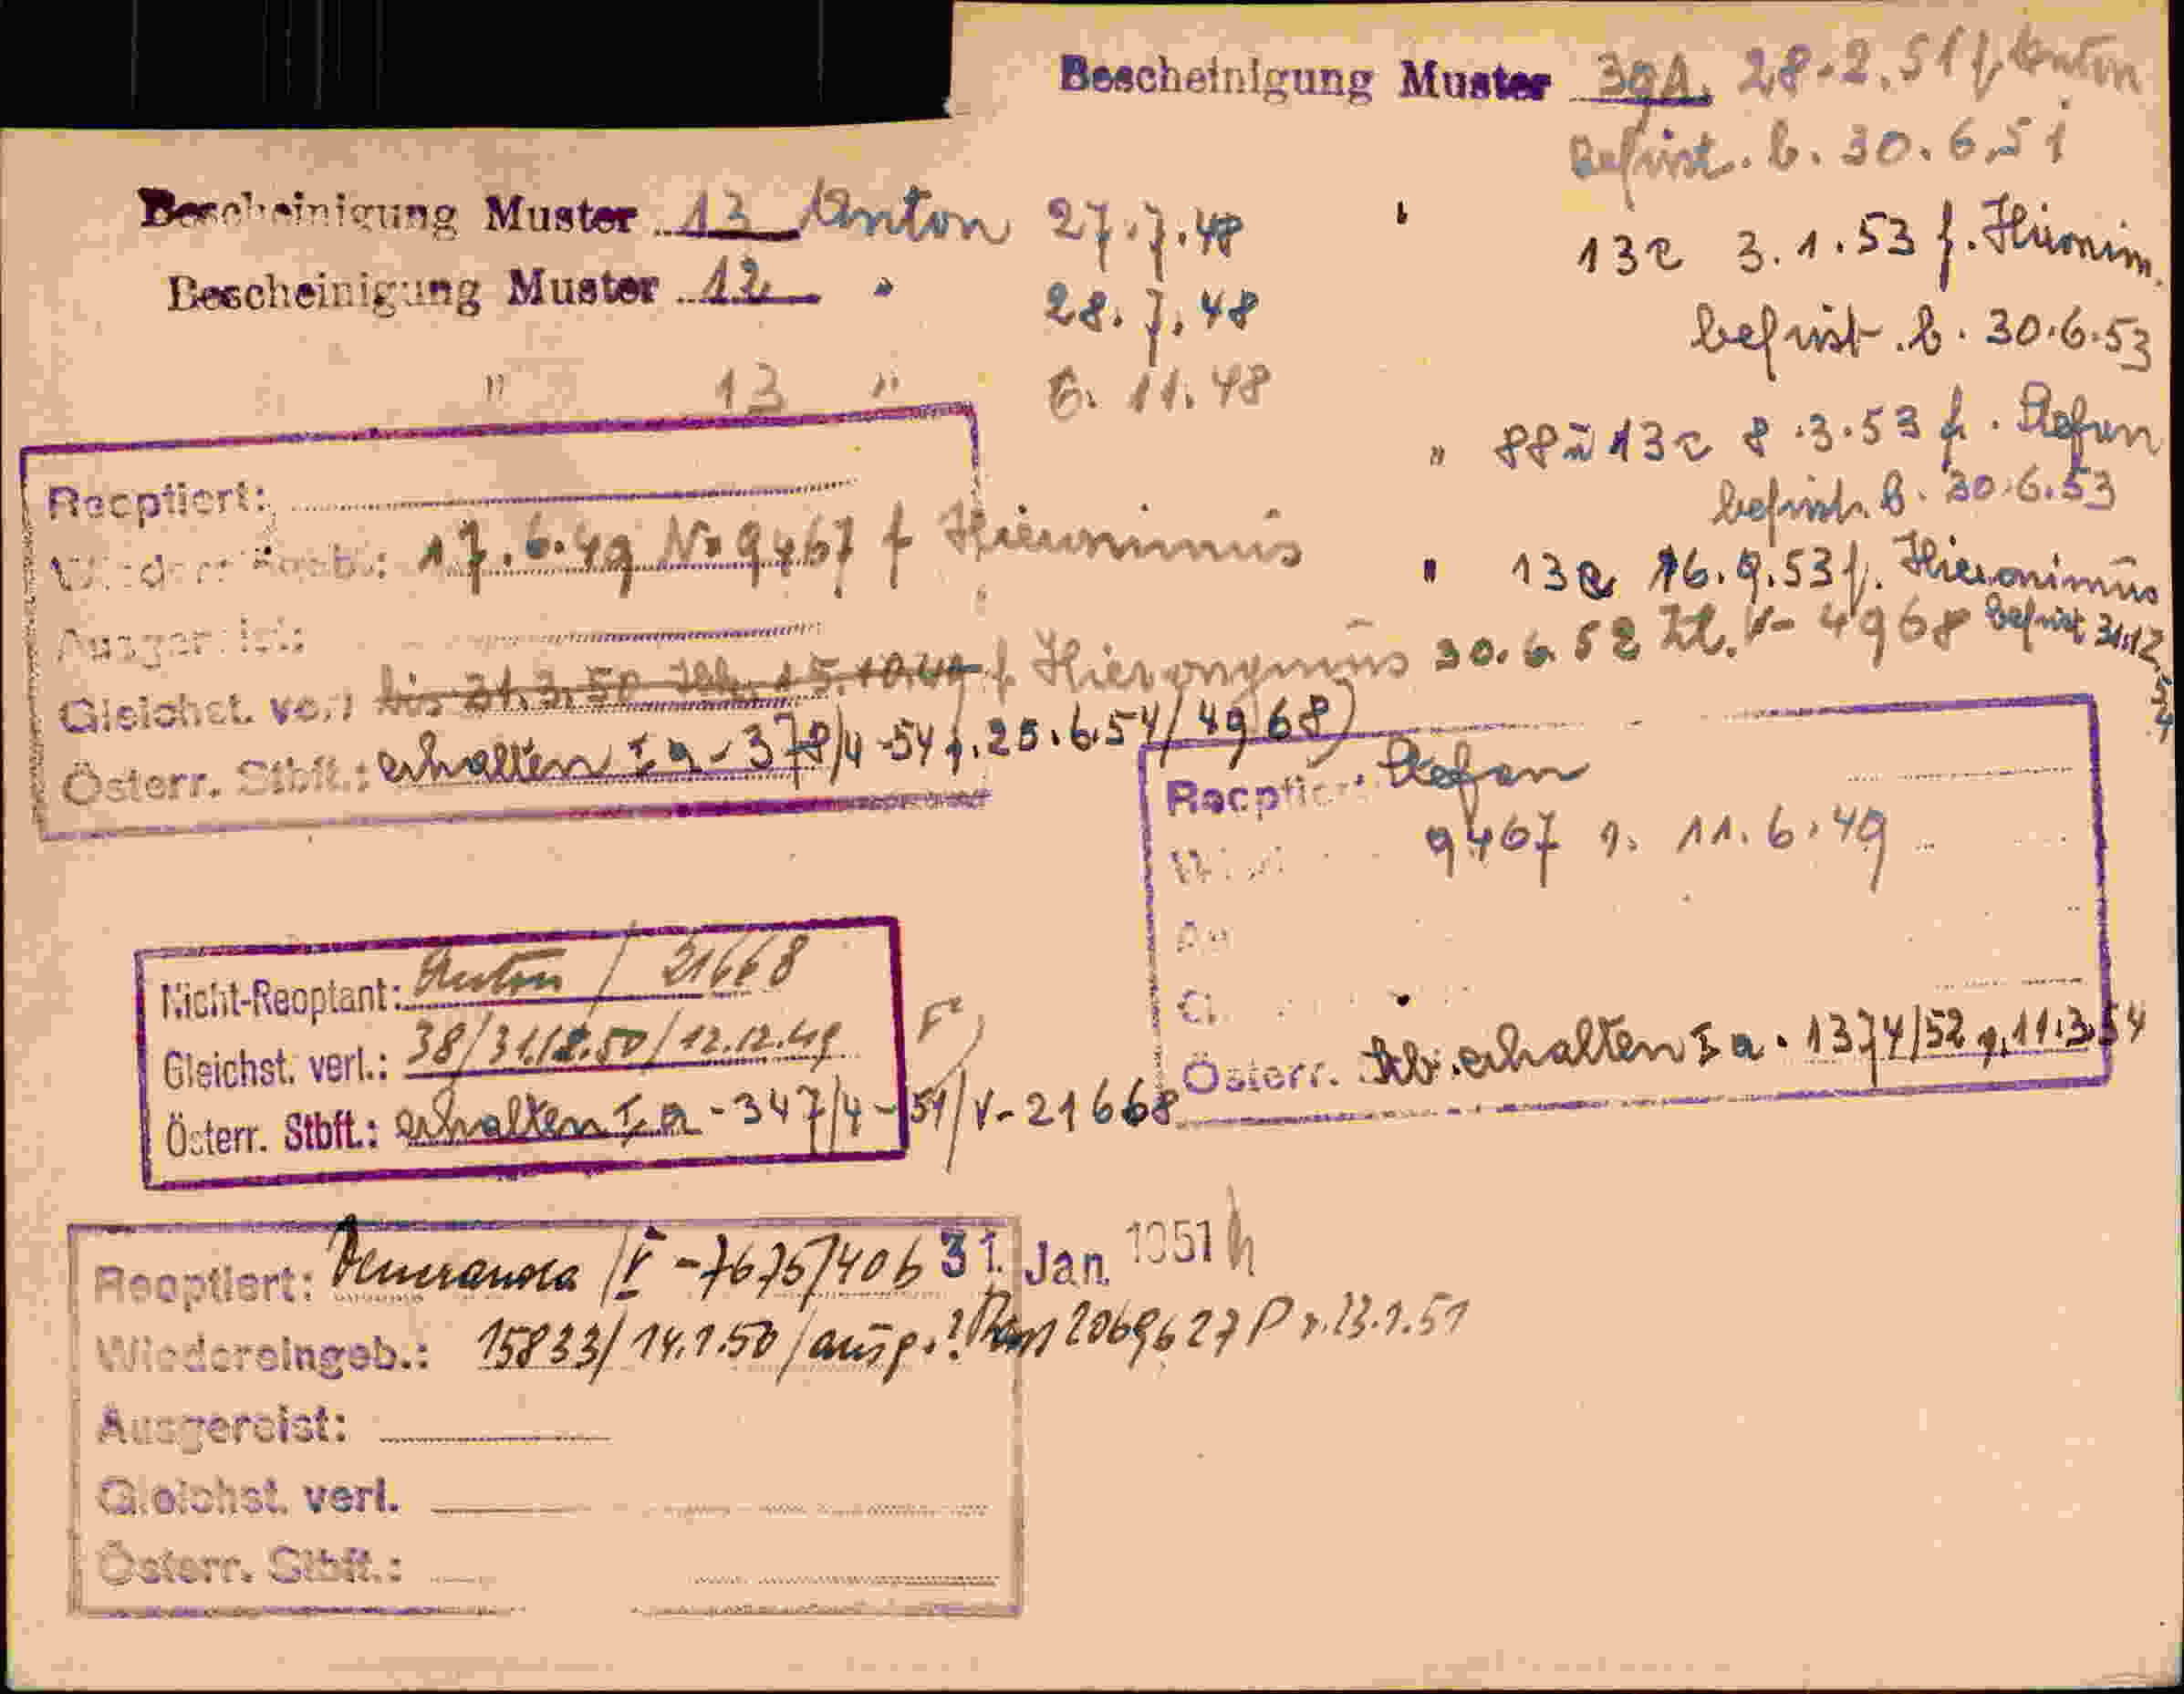 Bescheinigung Muster 30A. 28.2.51 f. Anton
Befrist. b. 30.6.51
Bescheinigung Muster 13 Anton 27.7.48
13 3.1.53 f.
Bescheinigung Muster 12 " 28.7.48
befrist. b. 30.6.53
" 13 " 6.11.48
" 88 13 8.3.53 f. Stefan
befrist. b. 30.6.53
Reoptiert:
17.6.49 No 9467 f
" 13 16.9.53 f. Hieronimus
Gleichst. bis 31.3.50 15.10.49 f Hieronymus 30.6.52 Zl. V-4968 befrist 31.12.54
Österr. Stbft.: erhalten I a-378/4-54 25.6.54/4968)
Reoptiert: Stefan
9467 11.6.49
Österr. Stb. erhalten I a. 1374/52 11.3.54
Nicht-Reoptant: Anton / 21668
Gleichst. verl.: 38/31.12.50/12.12.49
Österr. Stbft.: erhalten I a-347/4-54/V-21668
Reoptiert: 31. Jan. 1951
Wiedereingeb.: 15833/14.1.50/ 2069627 P
Ausgereist:
Gleichst. verl.
Österr. Stbft.: